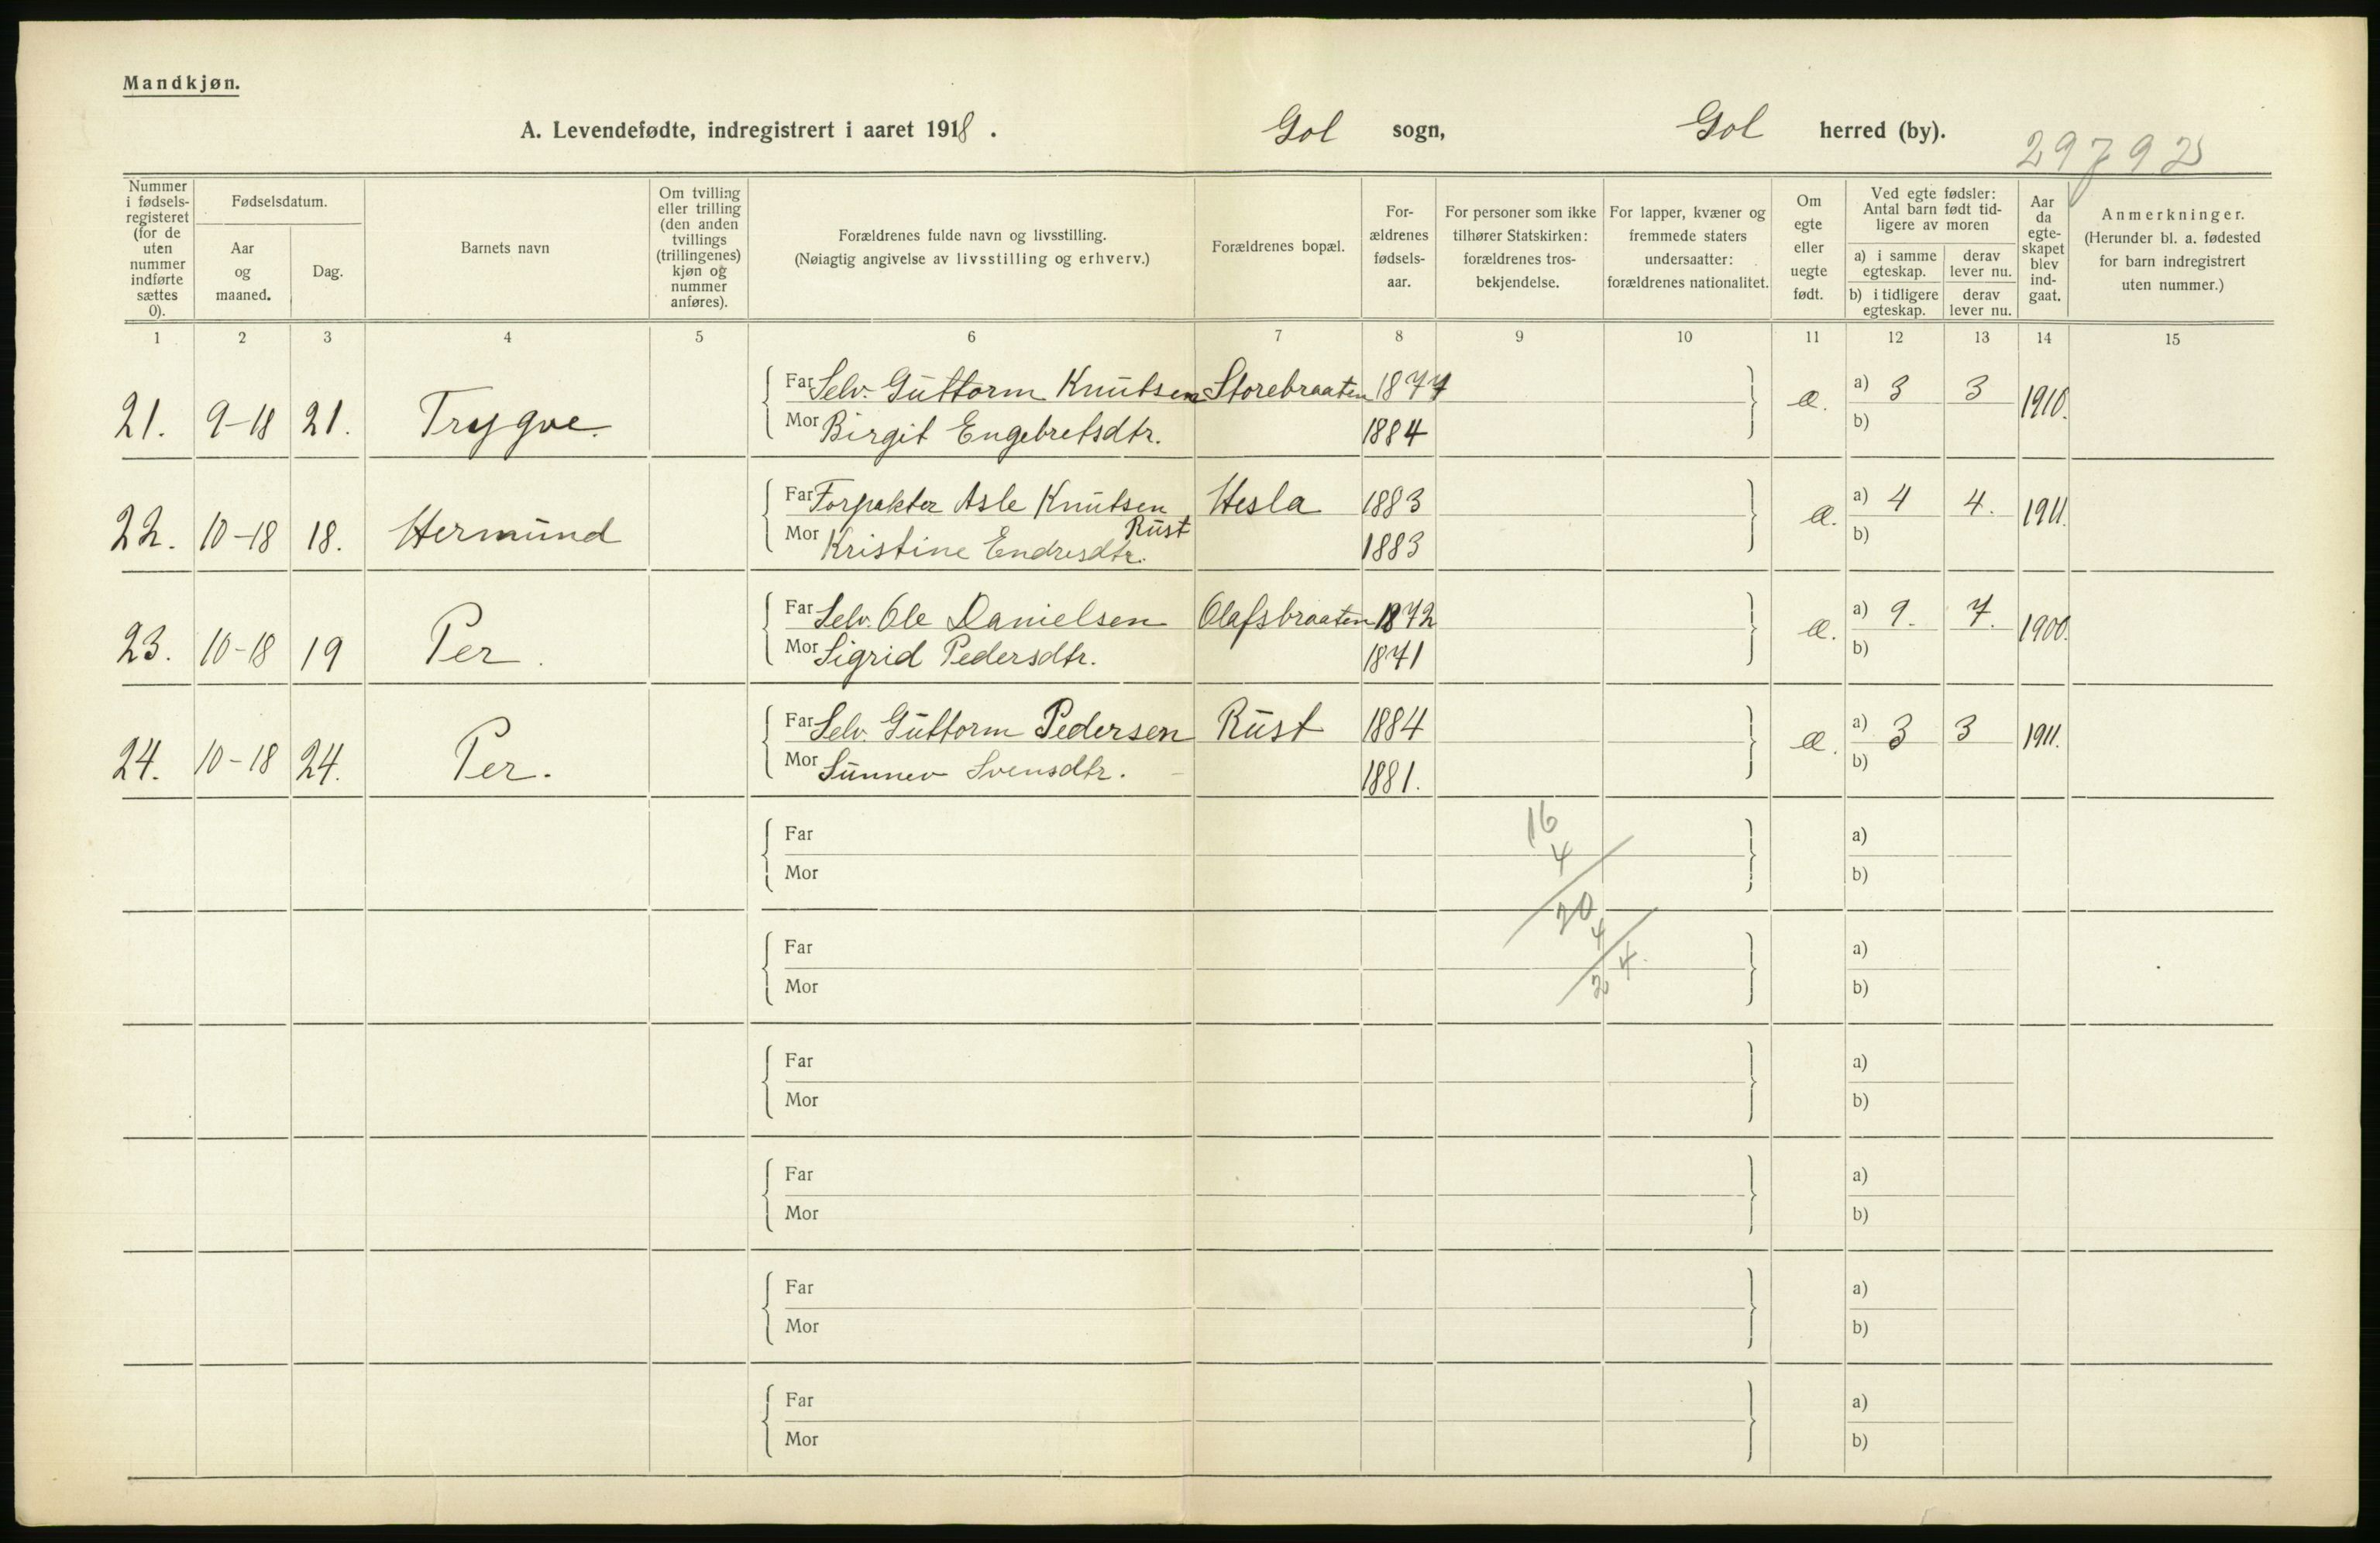 Mandkjøn.
A. Levendefødte, indregistrert i aaret 1918. Gol sogn, Gol herred (by).
29792
Nummer i fødselsregisteret (for de uten nummer indførte sættes 0).
Fødselsdatum.
Aar og maaned.
Dag.
Barnets navn
Om tvilling eller trilling (den anden tvillings (trillingenes) kjøn og nummer anføres).
Forældrenes fulde navn og livsstilling.
(Nøiagtig angivelse av livsstilling og erhverv.)
Forældrenes bopæl.
For-
ældrenes
fødsels-
aar.
For personer som ikke
tilhører Statskirken:
forældrenes tros-
bekjendelse.
For lapper, kvæner og
fremmede staters
undersaatter:
forældrenes nationalitet.
Om
egte
eller
uegte
født.
Ved egte fødsler:
Antal barn født tid-
ligere av moren
a) i samme egteskap.
derav lever nu.
b) i tidligere egteskap.
derav lever nu.
Aar da egte-skapet blev ind-gaat.
Anmerkninger.
(Herunder bl. a. fødested
for barn indregistrert
uten nummer.)
1 2 3 4 5 6 7 8 9 10 11 12 13 14 15
Far Selv. Guttorm Knutsen Storebraaten 1877 a) 3 3
21. 9-18 21. Trygve. Æ. 1910.
Mor Birgit Engebretsdtr. 1884 b)
Far Forpakter Asle Knutsen Hesla 1883 a) 4 4.
Rust
22. 10-18 18. Hermund Æ. 1911.
Mor Kristine Endresdtr. 1883 b)
Far Selv. Ole Danielsen Olafsbraaten 1872 a) 9. 7.
23. 10-18 19 Per. Æ. 1900.
Mor Sigrid Pedersdtr. 1871 b)
Far Selv. Guttorm Pedersen Rust 1884 a) 3 3
24. 10-18 24. Per. Æ. 1911.
Mor Sunnev Svensdtr. 1881. b)
16
4
20
4
24.
Far a)
Mor b)
Far a)
Mor b)
Far a)
Mor b)
Far a)
Mor b)
Far a)
Mor b)
Far a)
Mor b)